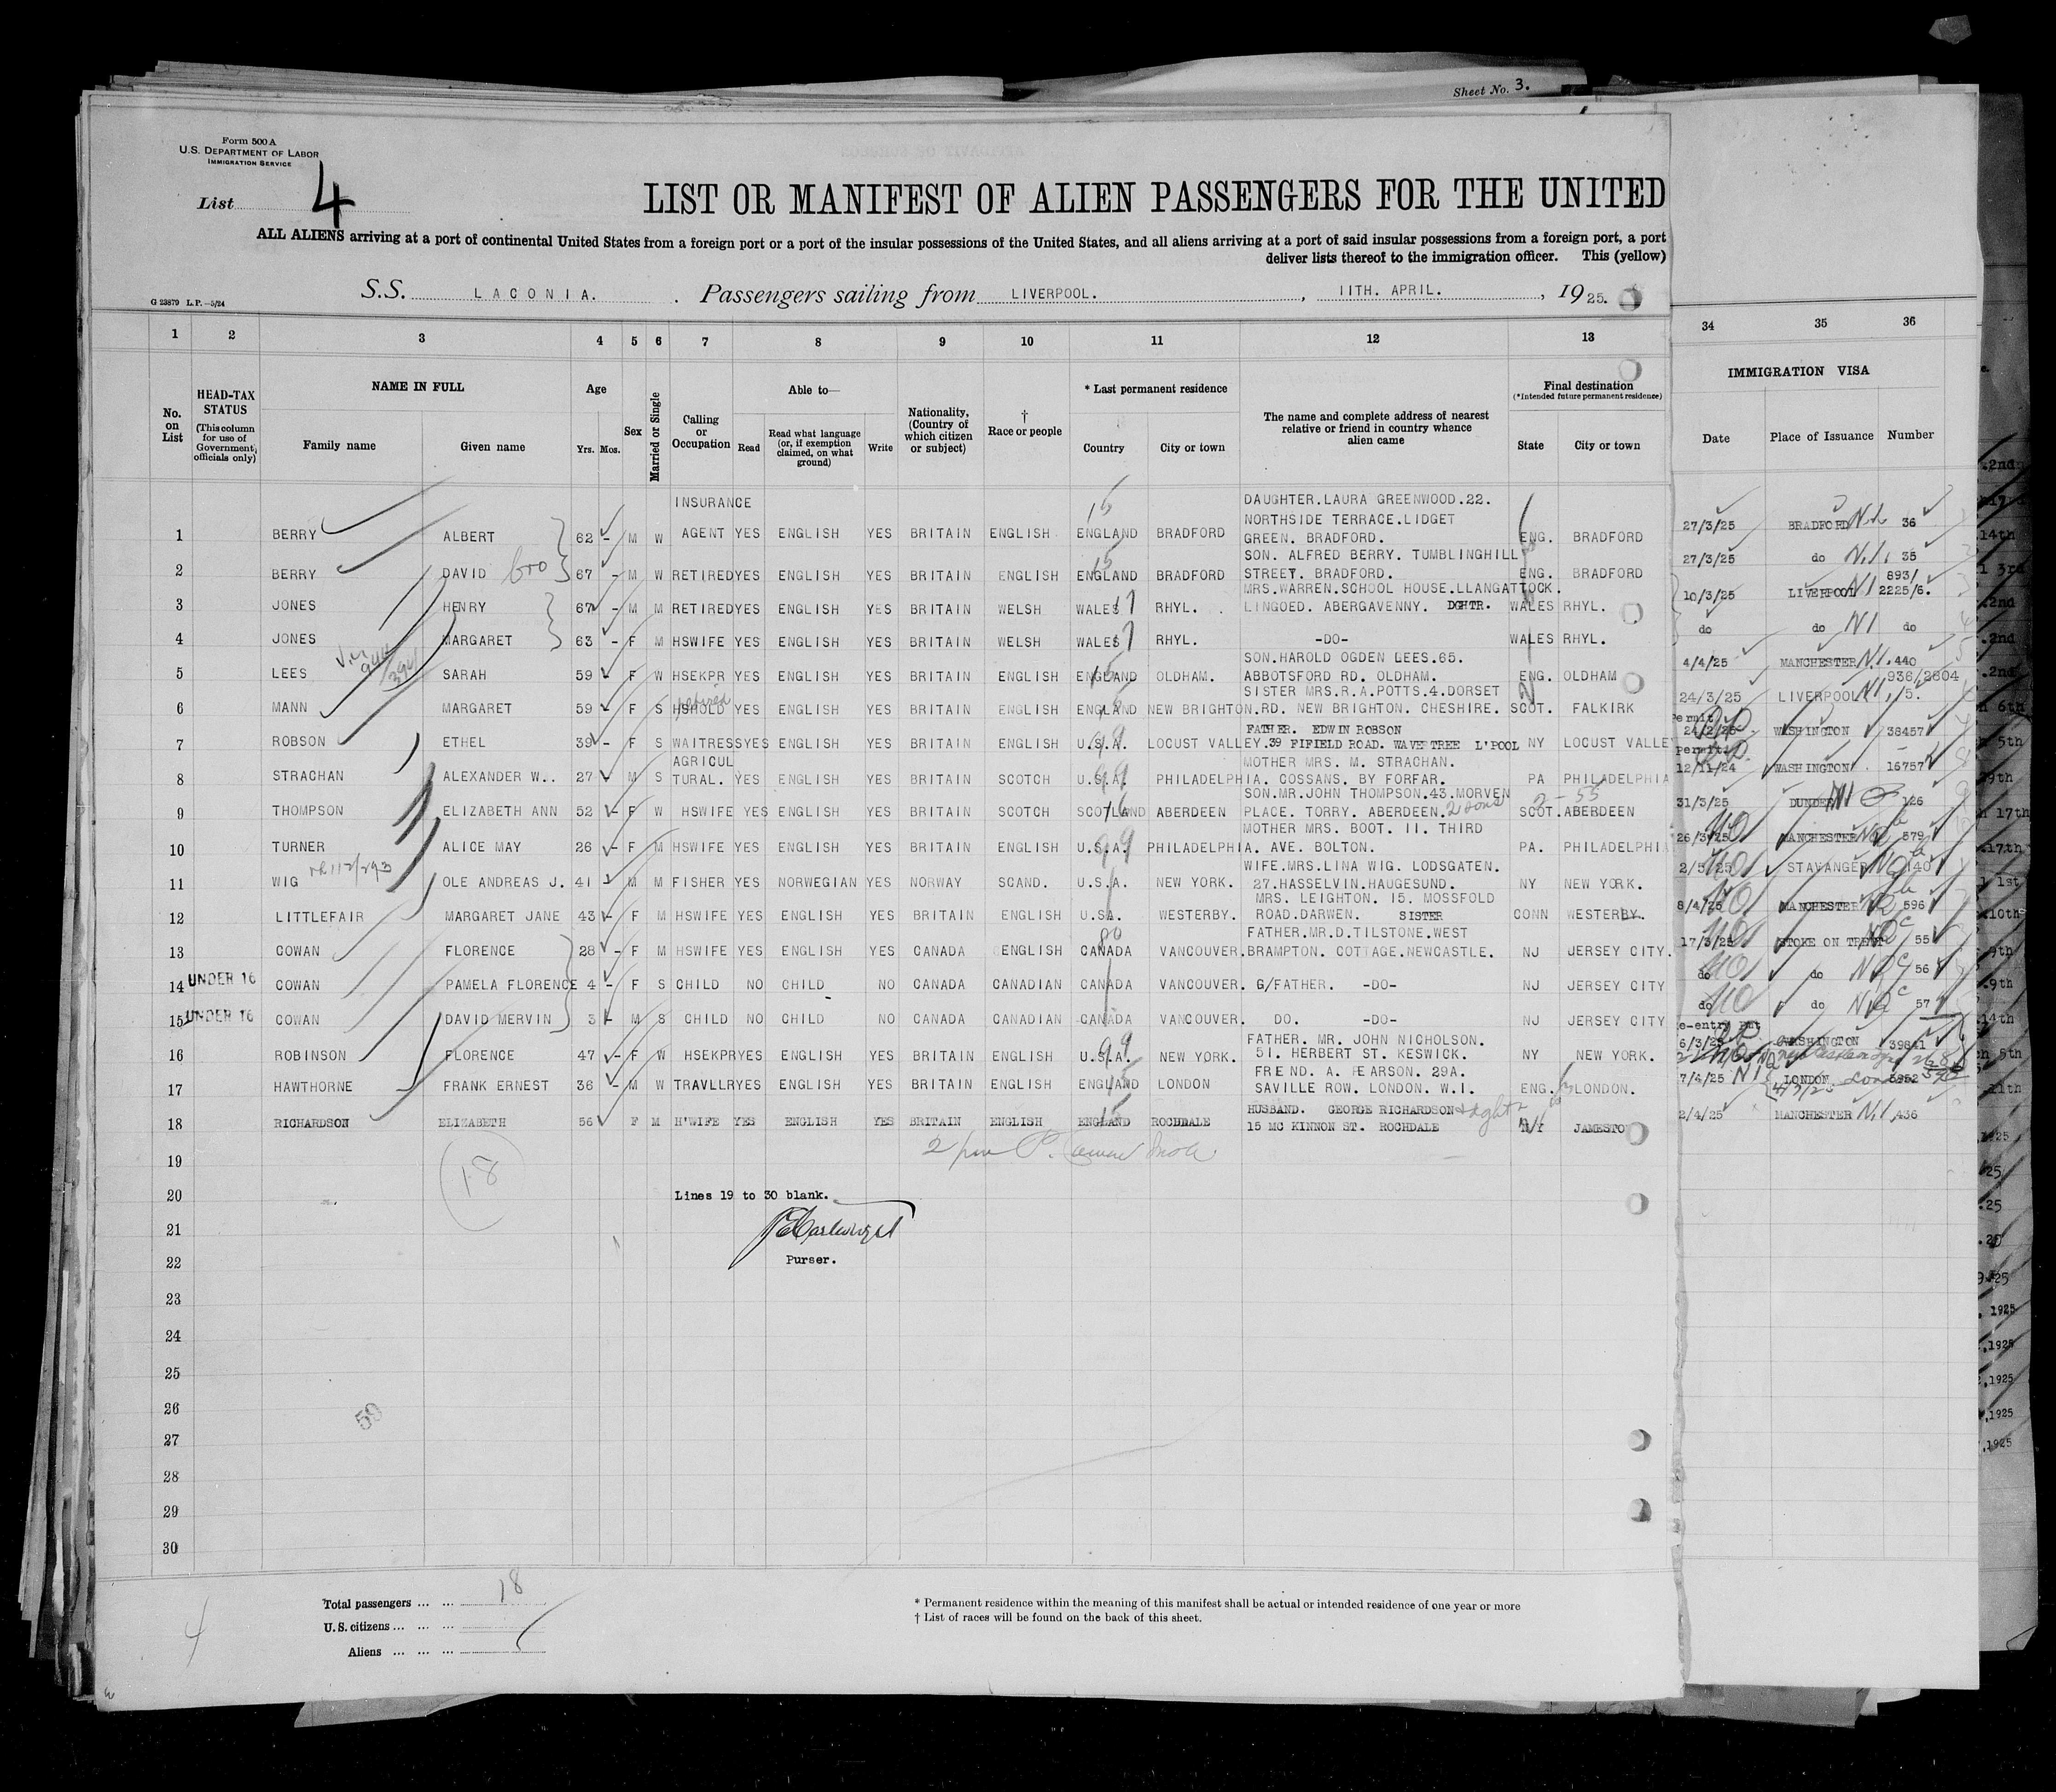 Sheet No. 3.
Form 500 A
U.S. DEPARTMENT OF LABOR
IMMIGRATION SERVICE
List 4
LIST OR MANIFEST OF ALIEN PASSENGERS FOR THE UNITED
ALL ALIENS arriving at a port of continental United States from a foreign port or a port of the insular possessions of the United States, and all aliens arriving at a port of said insular possessions from a foreign port, a port
deliver lists thereof to the immigration officer. This (yellow)
G 23879 L.P.—5/24
S.S. LACONIA. Passengers sailing from LIVERPOOL. , 11TH. APRIL. , 1925.
1 2 3 4 5 6 7 8 9 10 11 12 13 34 35 36
No. on List
HEAD-TAX STATUS (This column for use of Government officials only)
NAME IN FULL
Family name Given name
Age Yrs. Mos.
Sex
Married or Single
Calling or Occupation
Able to—
Read Read what language (or, if exemption claimed, on what ground) Write
Nationality, (Country of which citizen or subject)
† Race or people
* Last permanent residence
Country City or town
The name and complete address of nearest relative or friend in country whence alien came
Final destination (*Intended future permanent residence)
State City or town
IMMIGRATION VISA
Date Place of Issuance Number
1 BERRY ALBERT 62 - M W INSURANCE AGENT YES ENGLISH YES BRITAIN ENGLISH ENGLAND BRADFORD DAUGHTER.LAURA GREENWOOD.22. NORTHSIDE TERRACE.LIDGET GREEN. BRADFORD. ENG. BRADFORD 27/3/25 BRADFORD 36
2 BERRY DAVID bro 67 - M W RETIRED YES ENGLISH YES BRITAIN ENGLISH ENGLAND BRADFORD SON. ALFRED BERRY. TUMBLINGHILL STREET. BRADFORD. ENG. BRADFORD 27/3/25 do N.I. 35
3 JONES HENRY 67 - M M RETIRED YES ENGLISH YES BRITAIN WELSH WALES RHYL. MRS.WARREN.SCHOOL HOUSE.LLANGATTOCK. LINGOED. ABERGAVENNY. DGHTR. WALES RHYL. 10/3/25 LIVERPOOL NI 893/2225/6.
4 JONES MARGARET 63 - F M HSWIFE YES ENGLISH YES BRITAIN WELSH WALES RHYL. -DO- WALES RHYL. do do NI do
5 LEES SARAH 59 - F W HSEKPR YES ENGLISH YES BRITAIN ENGLISH ENGLAND OLDHAM. SON.HAROLD OGDEN LEES.65. ABBOTSFORD RD. OLDHAM. ENG. OLDHAM 4/4/25 MANCHESTER N.I. 440
6 MANN MARGARET 59 - F S HSHOLD retired YES ENGLISH YES BRITAIN ENGLISH ENGLAND NEW BRIGHTON. SISTER MRS.R.A.POTTS.4.DORSET RD. NEW BRIGHTON. CHESHIRE. SCOT. FALKIRK 24/3/25 LIVERPOOL NI 936/2604/5.
7 ROBSON ETHEL 39 - F S WAITRESS YES ENGLISH YES BRITAIN ENGLISH U.S.A. LOCUST VALLEY. FATHER. EDWIN ROBSON 39 FIFIELD ROAD. WAVERTREE L'POOL NY LOCUST VALLEY Permit 24/2/25 WASHINGTON 38457
8 STRACHAN ALEXANDER W.. 27 - M S AGRICULTURAL. YES ENGLISH YES BRITAIN SCOTCH U.S.A. PHILADELPHIA. MOTHER MRS. M. STRACHAN. COSSANS. BY FORFAR. PA PHILADELPHIA Permit 12/11/24 WASHINGTON 16757
9 THOMPSON ELIZABETH ANN 52 - F W HSWIFE YES ENGLISH YES BRITAIN SCOTCH SCOTLAND ABERDEEN SON.MR.JOHN THOMPSON.43.MORVEN PLACE. TORRY. ABERDEEN. 2 sons SCOT. ABERDEEN 31/3/25 DUNDEE NI 126
10 TURNER ALICE MAY 26 - F M HSWIFE YES ENGLISH YES BRITAIN ENGLISH U.S.A. PHILADELPHIA. MOTHER MRS. BOOT. 11. THIRD AVE. BOLTON. PA. PHILADELPHIA 26/3/25 MANCHESTER 579
11 WIG OLE ANDREAS J. 41 - M M FISHER YES NORWEGIAN YES NORWAY SCAND. U.S.A. NEW YORK. WIFE.MRS.LINA WIG. LODSGATEN. 27.HASSELVIN.HAUGESUND. NY NEW YORK. 2/5/25 STAVANGER 40
12 LITTLEFAIR MARGARET JANE 43 - F M HSWIFE YES ENGLISH YES BRITAIN ENGLISH U.SA. WESTERBY. MRS. LEIGHTON. 15. MOSSFOLD ROAD.DARWEN. SISTER CONN WESTERBY. 8/4/25 MANCHESTER 596
13 COWAN FLORENCE 28 - F M HSWIFE YES ENGLISH YES CANADA ENGLISH CANADA VANCOUVER. FATHER.MR.D.TILSTONE.WEST BRAMPTON. COTTAGE.NEWCASTLE. NJ JERSEY CITY. 17/3/25 STOKE ON TRENT 55
14 UNDER 16 COWAN PAMELA FLORENCE 4 - F S CHILD NO CHILD NO CANADA CANADIAN CANADA VANCOUVER. G/FATHER. -DO- NJ JERSEY CITY do do 56
15 UNDER 16 COWAN DAVID MERVIN 3 - M S CHILD NO CHILD NO CANADA CANADIAN CANADA VANCOUVER. DO. -DO- NJ JERSEY CITY do do 57
16 ROBINSON FLORENCE 47 - F W HSEKPR YES ENGLISH YES BRITAIN ENGLISH U.S.A. NEW YORK. FATHER. MR. JOHN NICHOLSON. 51. HERBERT ST. KESWICK. NY NEW YORK. 6/3/25 WASHINGTON 39841
17 HAWTHORNE FRANK ERNEST 36 - M W TRAVLLR YES ENGLISH YES BRITAIN ENGLISH ENGLAND LONDON FRIEND. A. PEARSON. 29A. SAVILLE ROW. LONDON. W.1. ENG. LONDON. 7/4/25 NI LONDON 5952
18 RICHARDSON ELIZABETH 56 F M H'WIFE YES ENGLISH YES BRITAIN ENGLISH ENGLAND ROCHDALE HUSBAND. GEORGE RICHARDSON 15 MC KINNON ST. ROCHDALE JAMESTO 2/4/25 MANCHESTER N.I. 436
19
20 Lines 19 to 30 blank.
18
21
22 Purser.
23
24
25
26
59
27
28
29
30
Total passengers ... ... 18
U.S. citizens ... ... ...
Aliens ... ... ...
* Permanent residence within the meaning of this manifest shall be actual or intended residence of one year or more
† List of races will be found on the back of this sheet.
4